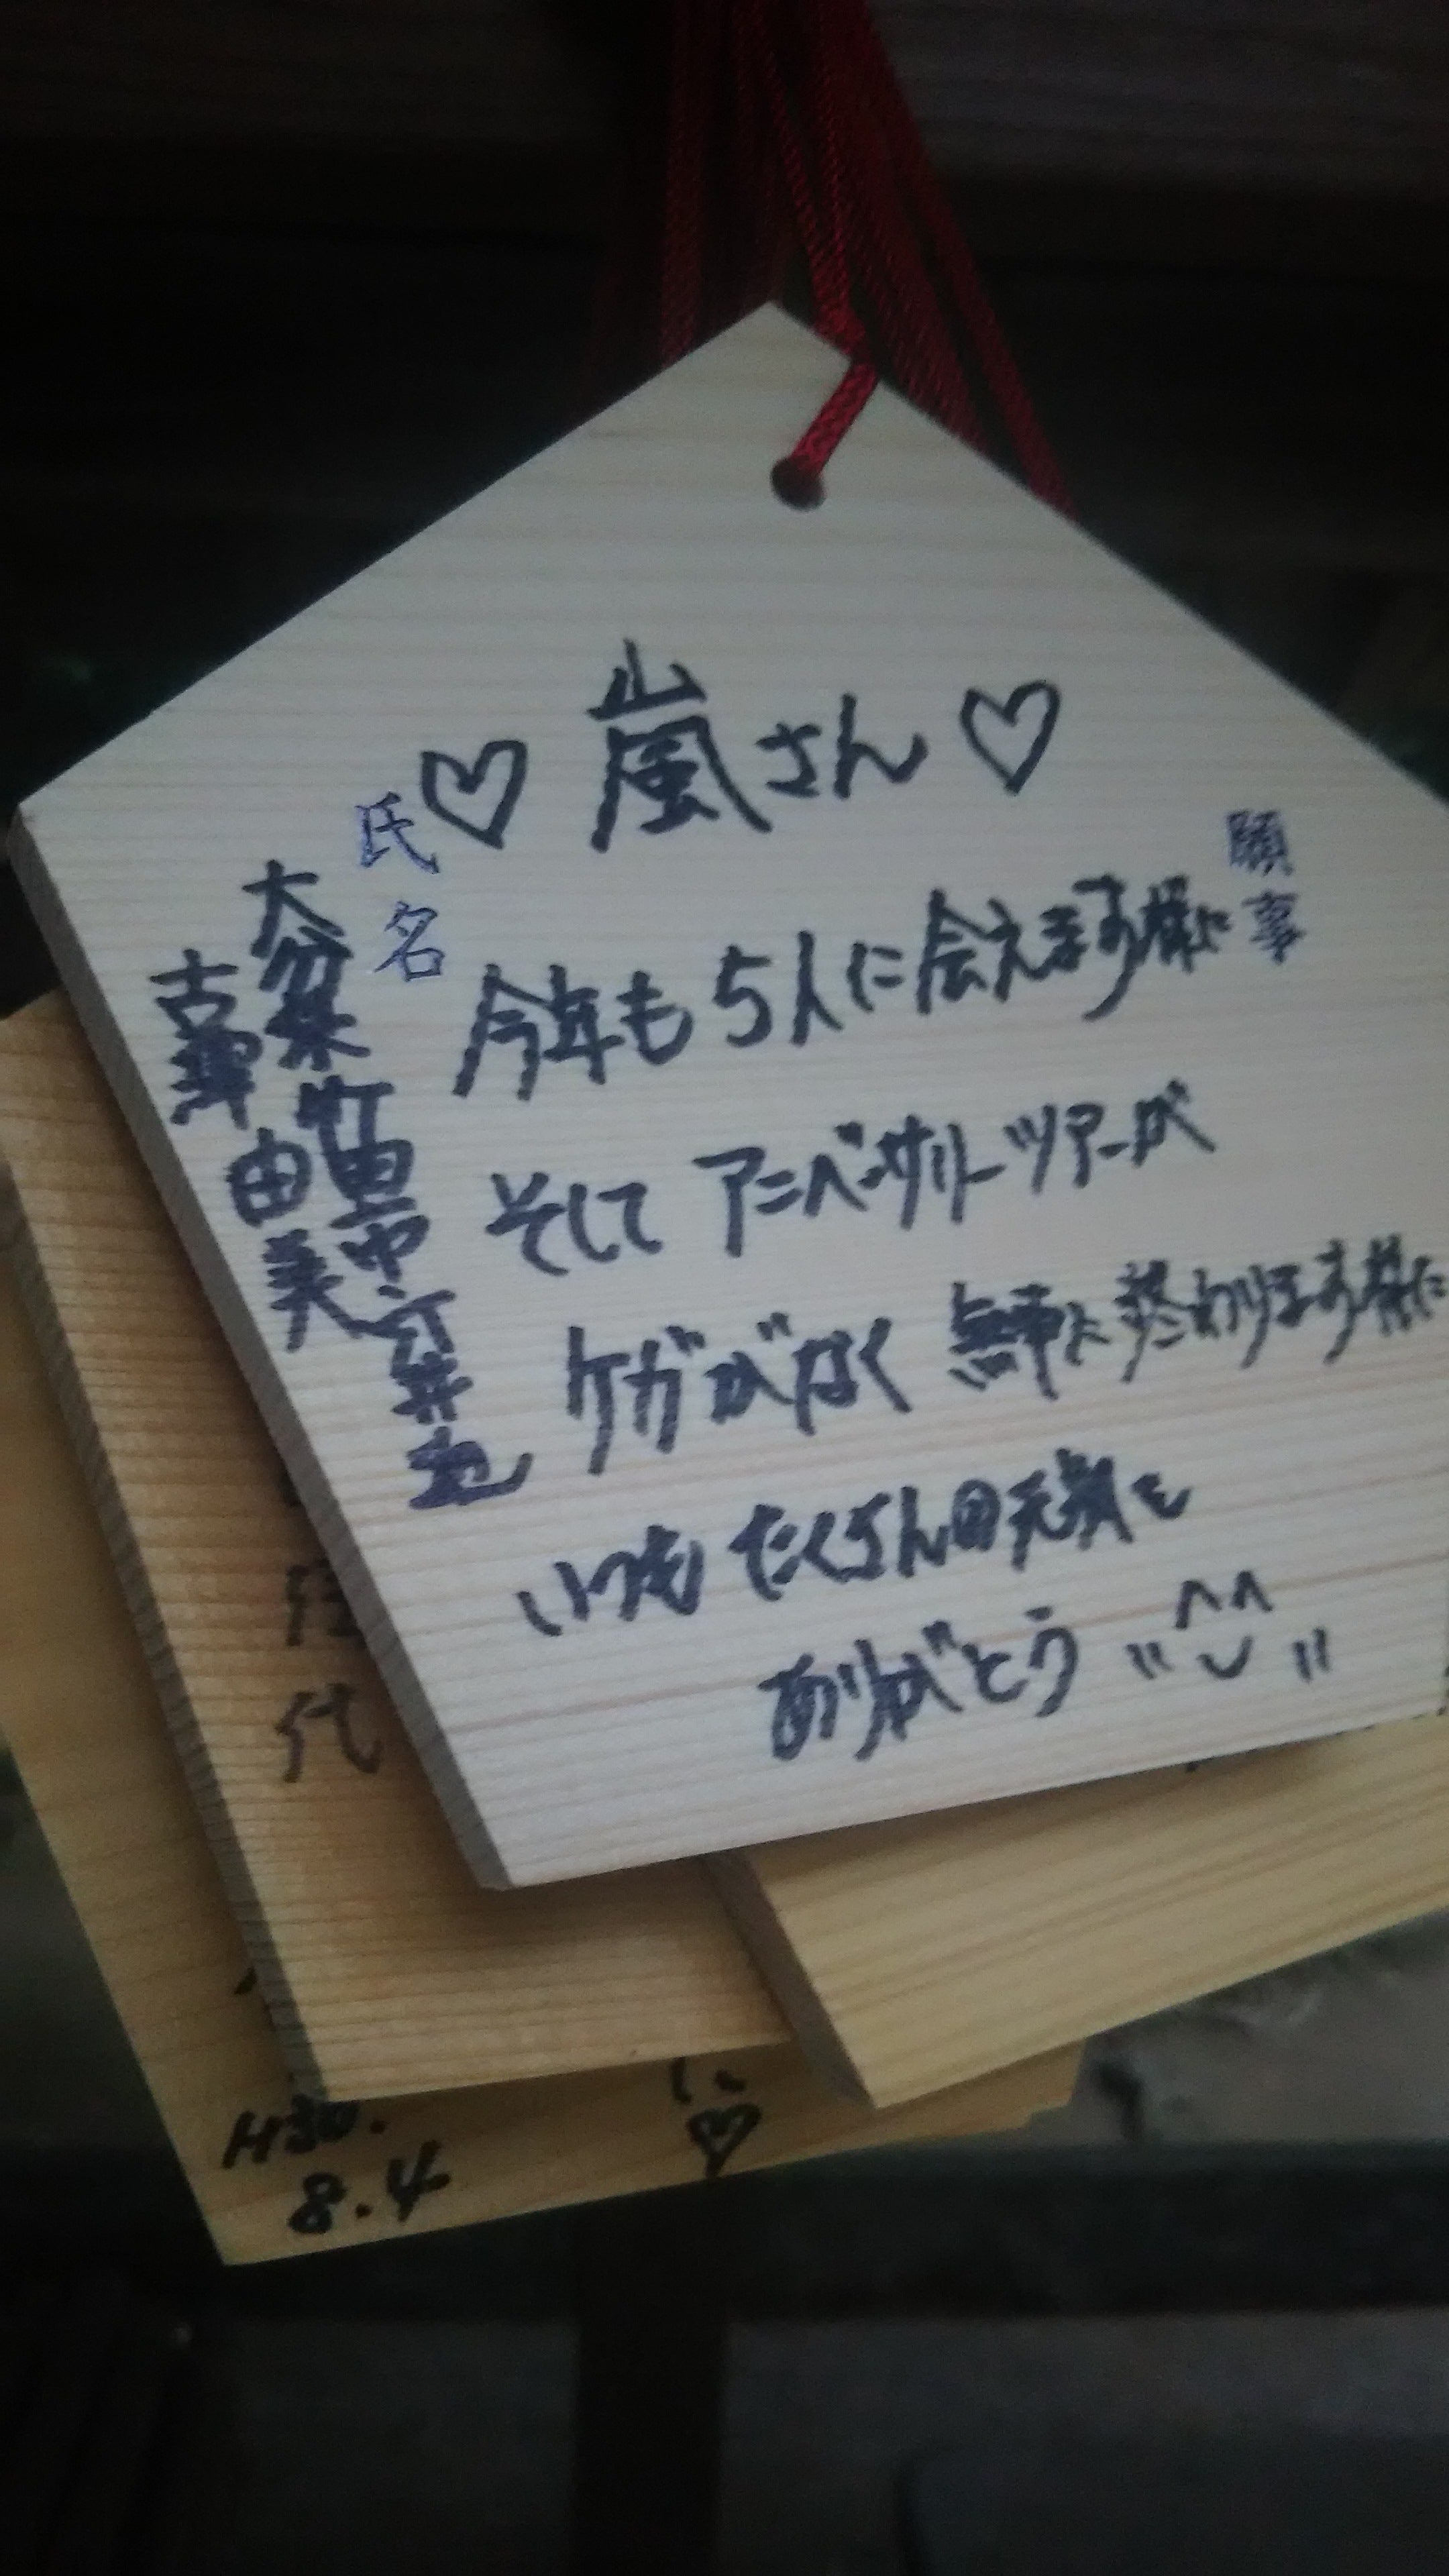 ♡ 嵐さん ♡
願事
今年も5人に会えます様に
そして アニバーサリーツアーが
ケガがなく 無事に終わります様に
いつも たくさんの元気を
ありがとう
氏名
大分県竹田市
由美
代
H30.
8.4
♡